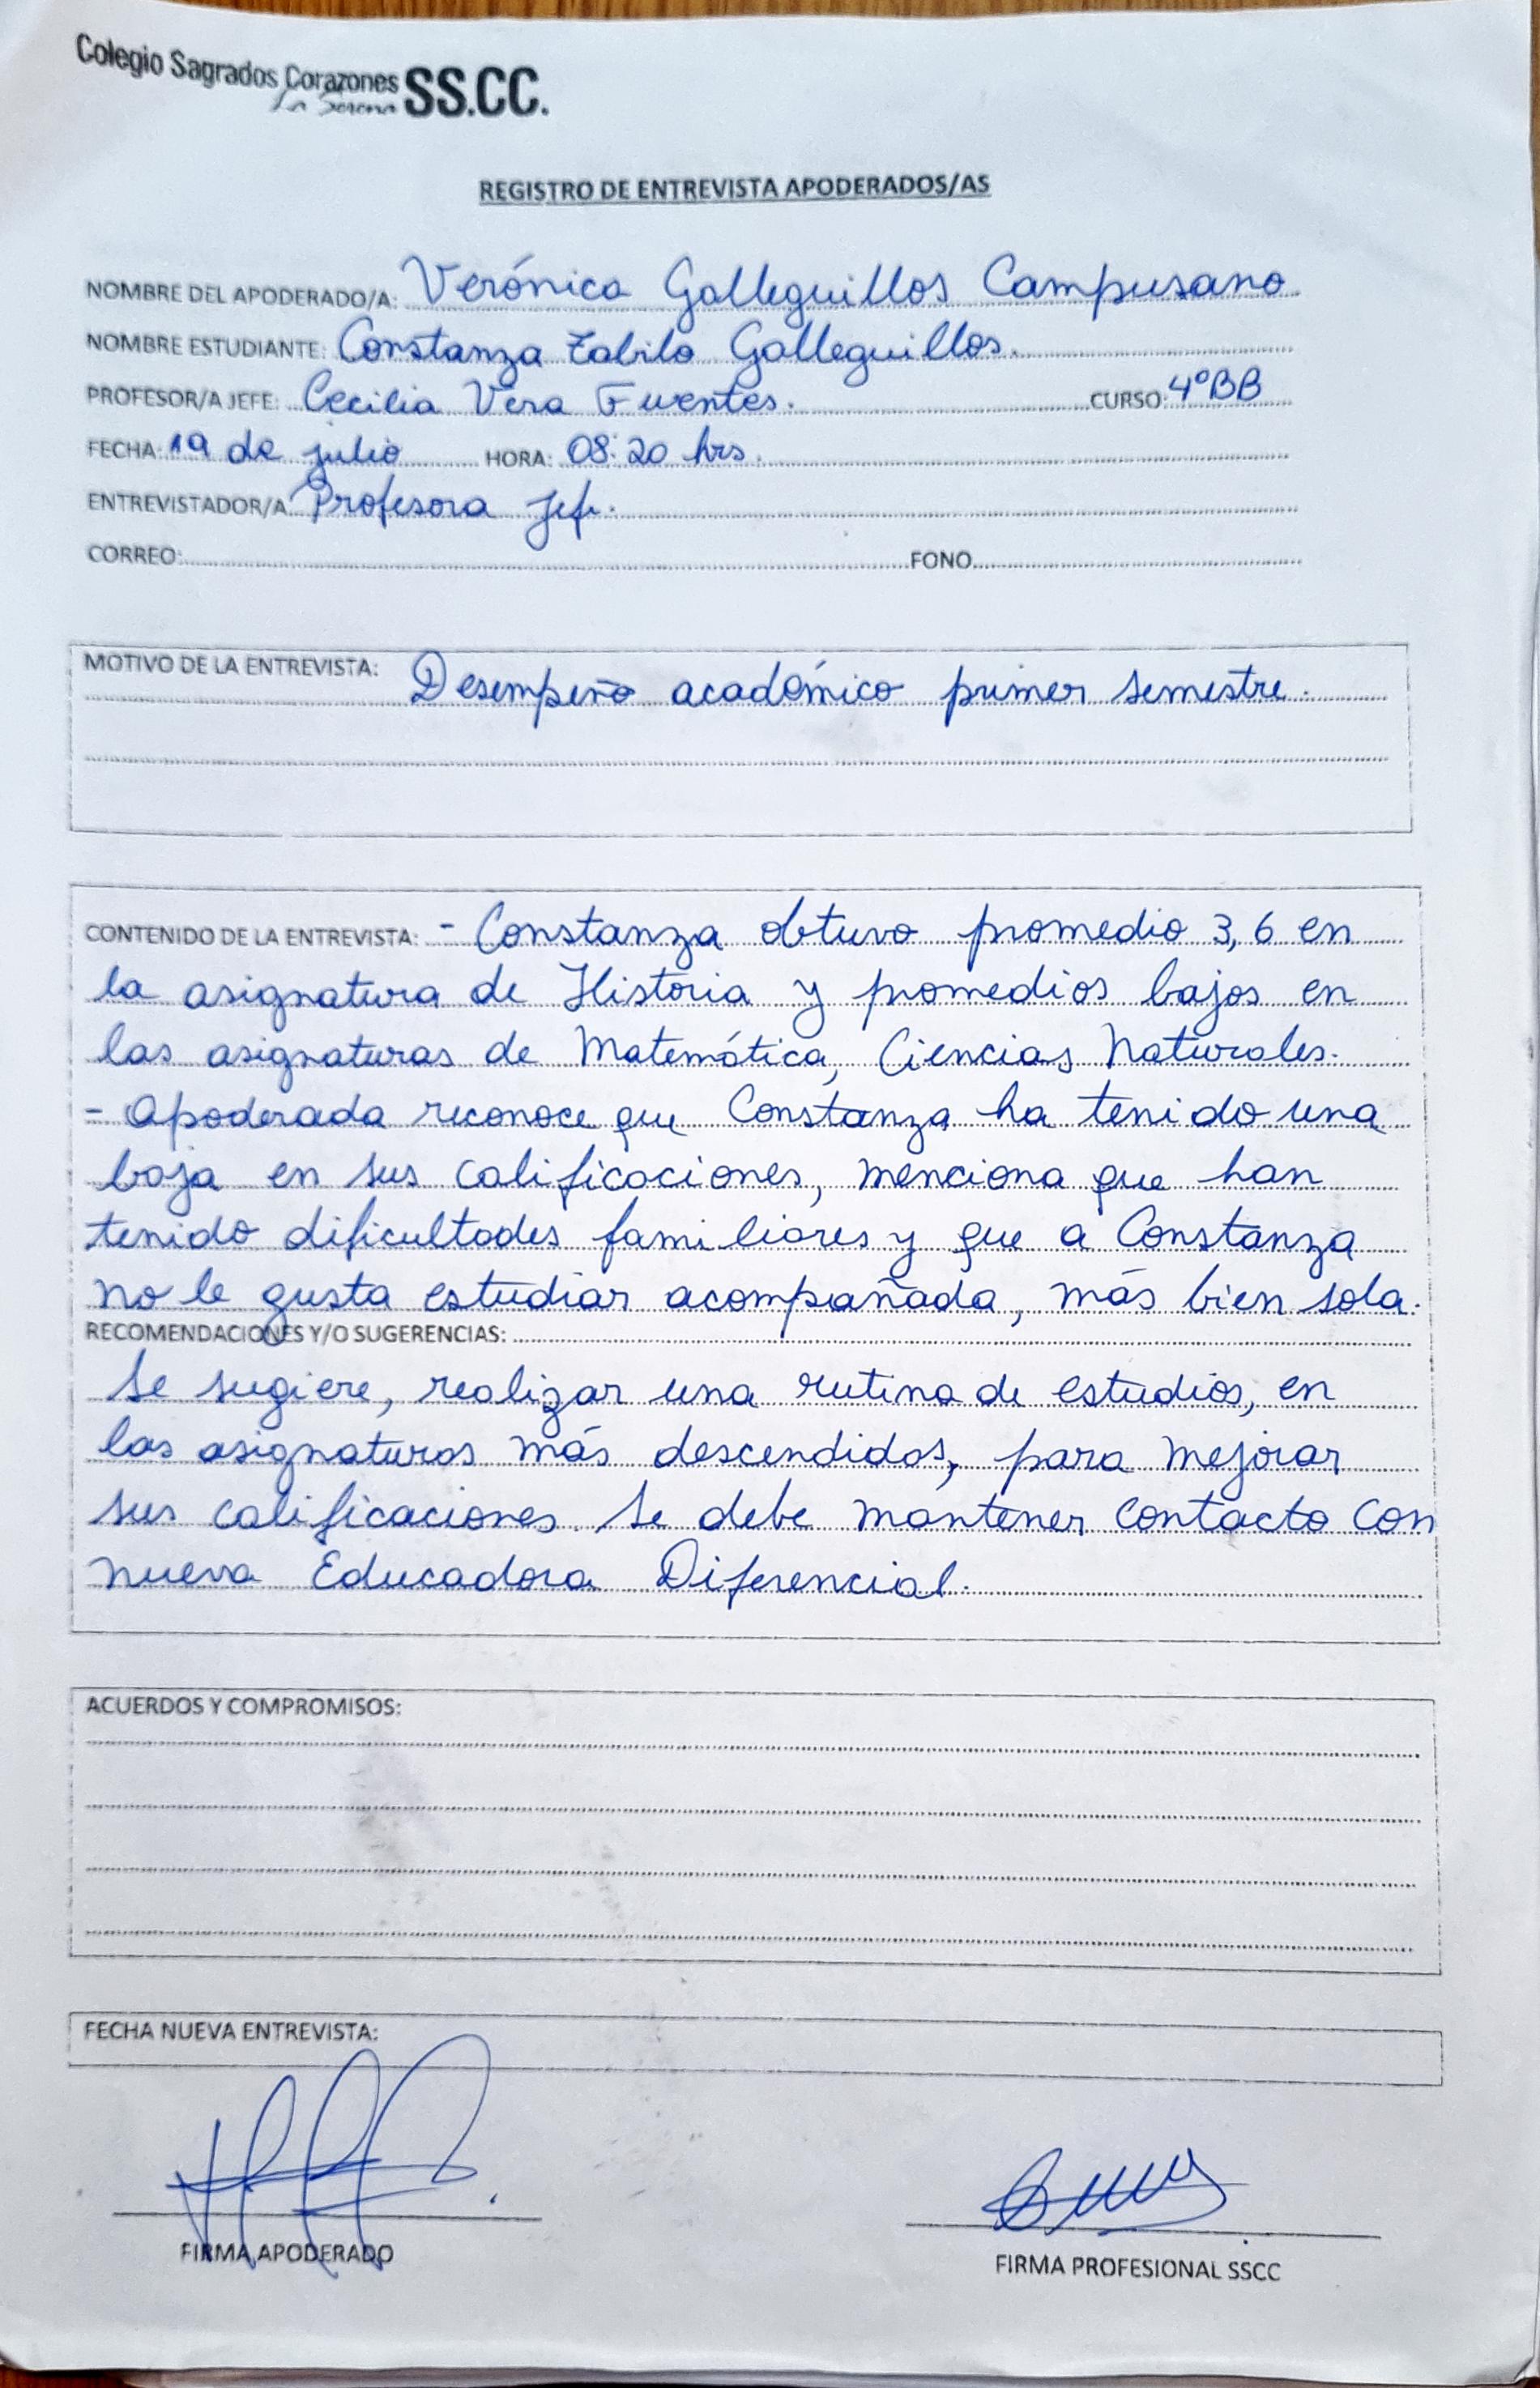 Colegio Sagrados Corazones SS.CC.
La Serena
REGISTRO DE ENTREVISTA APODERADOS/AS
NOMBRE DEL APODERADO/A: Verónica Galleguillos Campusano
NOMBRE ESTUDIANTE: Constanza Zabilo Galleguillos.
PROFESOR/A JEFE: Cecilia Vera Fuentes. CURSO: 4°BB
FECHA: 19 de julio HORA: 08:20 hrs.
ENTREVISTADOR/A: Profesora Jefe.
CORREO: FONO
MOTIVO DE LA ENTREVISTA: Desempeño académico primer semestre.
CONTENIDO DE LA ENTREVISTA: - Constanza obtuvo promedio 3,6 en
la asignatura de Historia y promedios bajos en
las asignaturas de Matemática, Ciencias Naturales.
- Apoderada reconoce que Constanza ha tenido una
baja en sus calificaciones, menciona que han
tenido dificultades familiares y que a Constanza
no le gusta estudiar acompañada, más bien sola.
RECOMENDACIONES Y/O SUGERENCIAS:
Se sugiere, realizar una rutina de estudios, en
las asignaturas más descendidas, para mejorar
sus calificaciones. Se debe mantener contacto con
nueva Educadora Diferencial.
ACUERDOS Y COMPROMISOS:
FECHA NUEVA ENTREVISTA:
FIRMA APODERADO
FIRMA PROFESIONAL SSCC